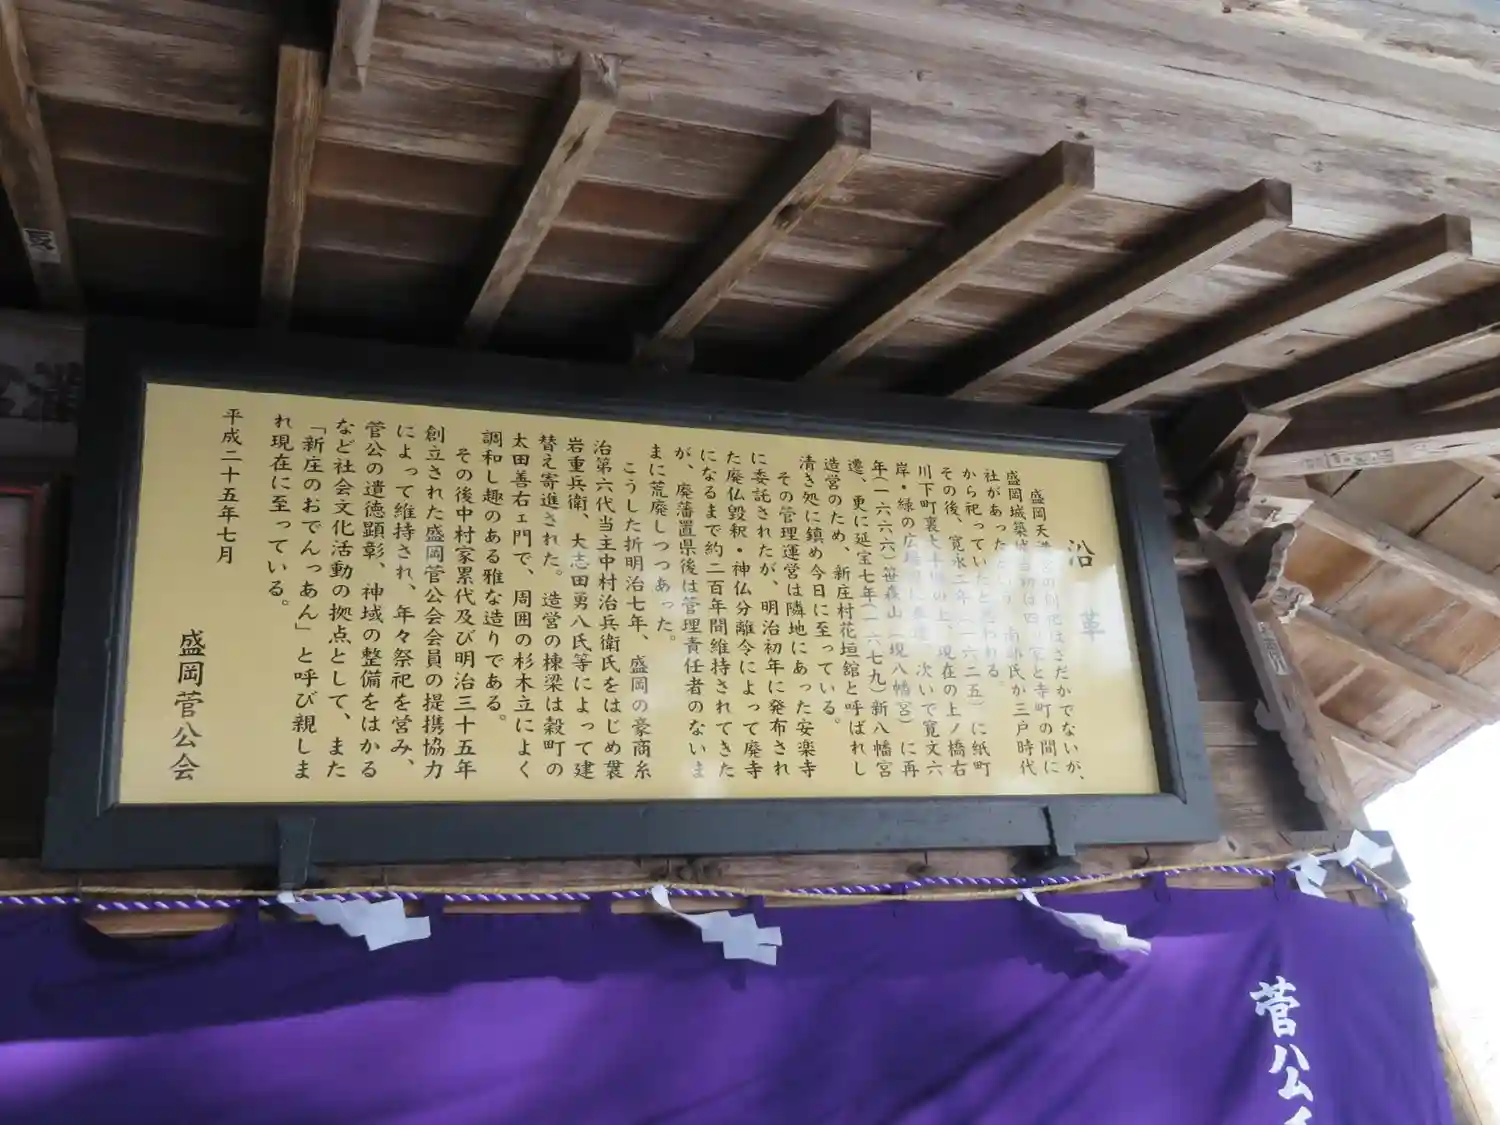 沿革
盛岡天満宮の創祀はさだかでないが、
盛岡城築城当初は四ッ家と寺町の間に
社があったという。南部氏が三戸時代
から祀っていたと思われる。
その後、寛永二年(一六二五)に紙町
川下町裏の上、現在の上ノ橋右
岸・緑の広場に次いで寛文六
年(一六六六)笹森山(現八幡宮)に再
遷、更に延宝七年(一六七九)新八幡宮
造営のため、新庄村花垣舘と呼ばれし
清き処に鎮め今日に至っている。
その管理運営は隣地にあった安楽寺
に委託されたが、明治初年に発布され
た廃仏毀釈・神仏分離令によって廃寺
になるまで約二百年間維持されてきた
が、廃藩置県後は管理責任者のないま
まに荒廃しつつあった。
こうした折明治七年、盛岡の豪商糸
治第六代当主中村治兵衛氏をはじめ襲
岩重兵衛、大志田勇八氏等によって建
替え寄進された。造営の棟梁は穀町の
太田善右ェ門で、周囲の杉木立によく
調和し趣のある雅な造りである。
その後中村家累代及び明治三十五年
創立された盛岡菅公会会員の提携協力
によって維持され、年々祭祀を営み、
菅公の遺徳顕彰、神域の整備をはかる
など社会文化活動の拠点として、また
「新庄のおでんっあん」と呼び親しま
れ現在に至っている。
平成二十五年七月
盛岡菅公会
菅公